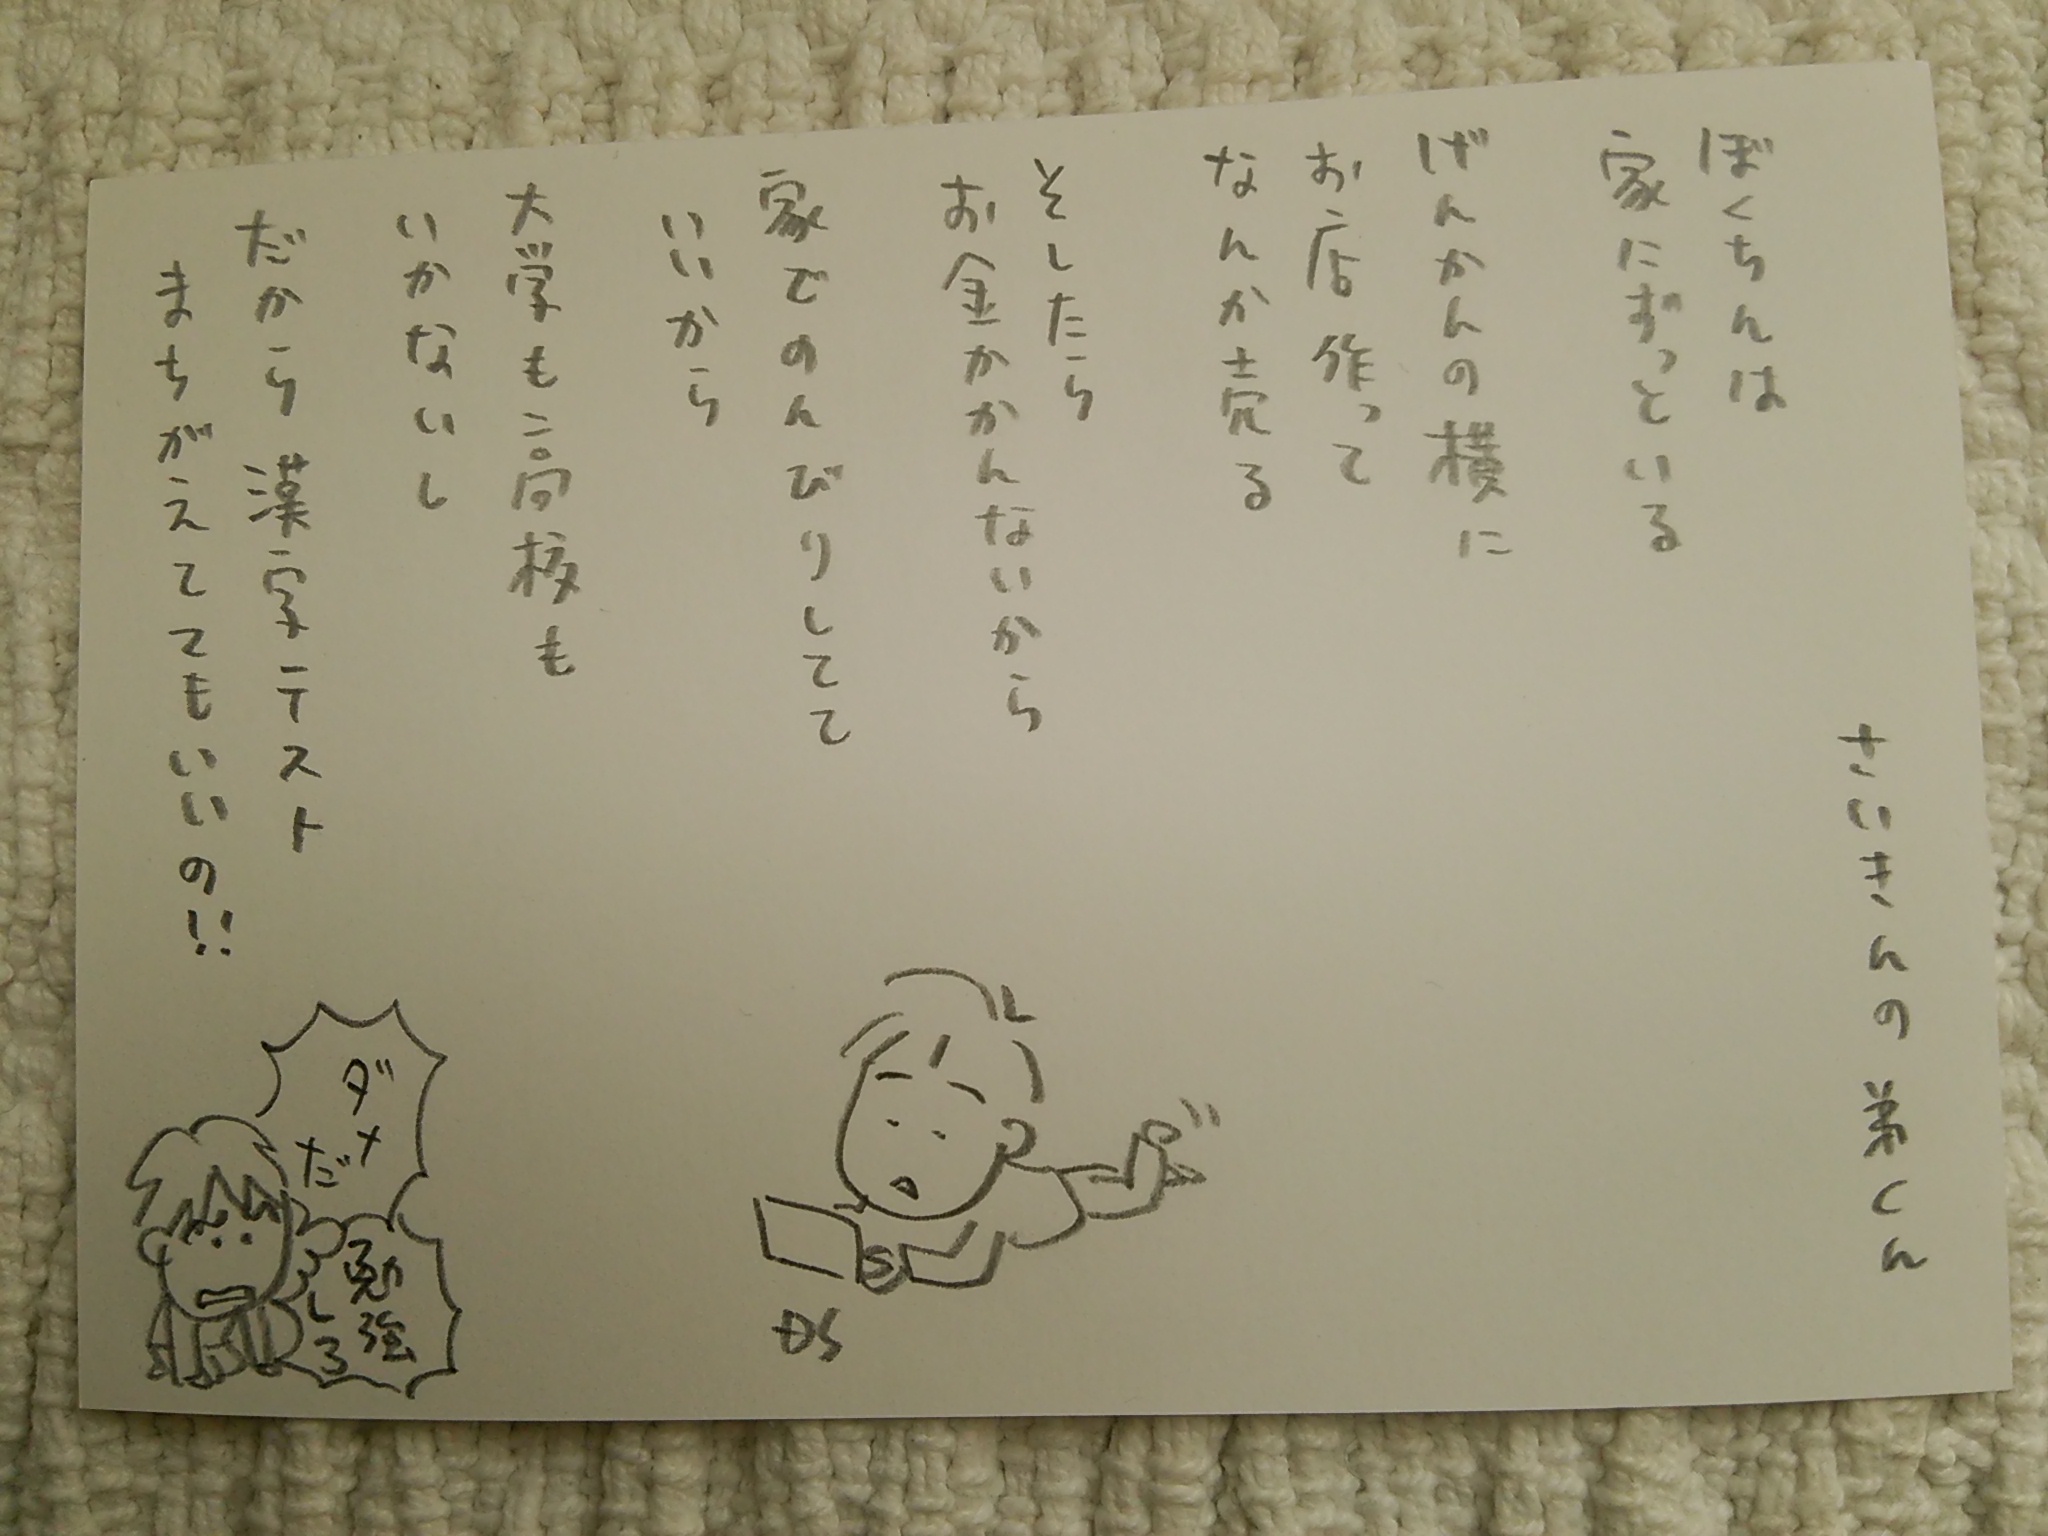 さいきんの弟くん
ぼくちんは
家にずっといる
げんかんの横に
お店作って
なんか売る
そしたら
お金かかんないから
家でのんびりしてて
いいから
大学も高校も
いかないし
だから漢字テスト
まちがえててもいいの!!
DS
ダメ
だ
勉強
しろ